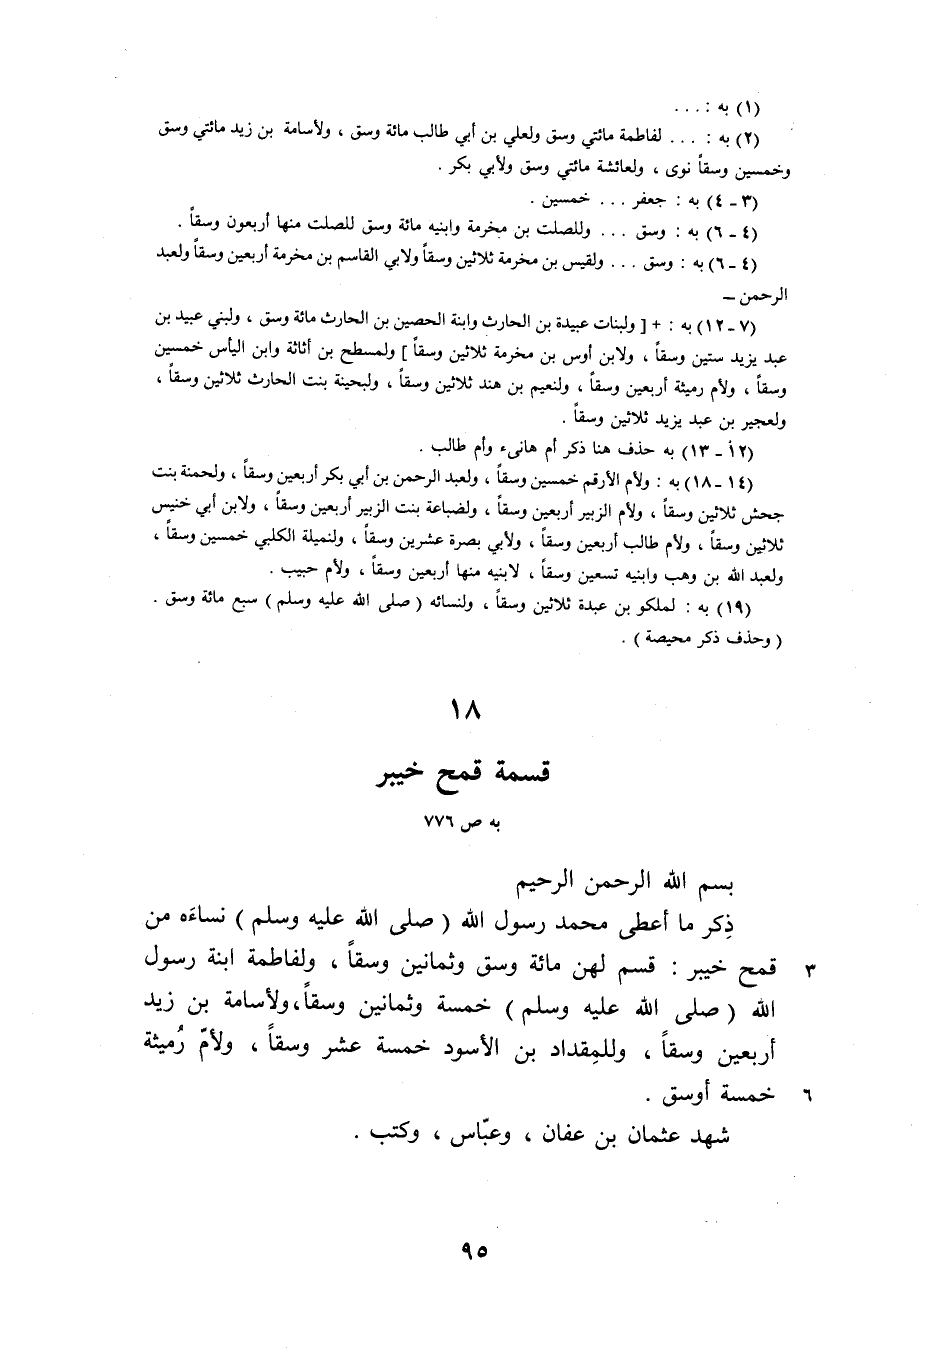 (١) به : ...
(٢) به : ... لفاطمة مائتي وسق ولعلي بن أبي طالب مائة وسق ، ولأسامة بن زيد مائتي وسق
وخمسين وسقاً نوى ، ولعائشة مائتي وسق ولأبي بكر .
(٣ - ٤) به : جعفر ... خمسين .
(٤ - ٦) به : وسق ... وللصلت بن مخرمة وابنيه مائة وسق للصلت منها أربعون وسقاً .
(٤ - ٦) به : وسق ... ولقيس بن مخرمة ثلاثين وسقاً ولابي القاسم بن مخرمة أربعين وسقاً ولعبد
الرحمن –
(٧ - ١٢) به : + [ ولبنات عبيدة بن الحارث وابنة الحصين بن الحارث مائة وسق ، ولبني عبيد بن
عبد يزيد ستين وسقاً ، ولابن أوس بن مخرمة ثلاثين وسقاً ] ولمسطح بن أثاثة وابن اليأس خمسين
وسقاً ، ولأم رميثة أربعين وسقاً ، ولنعيم بن هند ثلاثين وسقاً ، ولبحينة بنت الحارث ثلاثين وسقاً ،
ولعجير بن عبد يزيد ثلاثين وسقاً .
(١٢أ - ١٣) به حذف هنا ذكر أم هانىء وأم طالب .
(١٤ - ١٨) به : ولأم الأرقم خمسين وسقاً ، ولعبد الرحمن بن أبي بكر أربعين وسقاً ، ولحمنة بنت
جحش ثلاثين وسقاً ، ولأم الزبير أربعين وسقاً ، ولضباعة بنت الزبير أربعين وسقاً ، ولابن أبي خنيس
ثلاثين وسقاً ، ولأم طالب أربعين وسقاً ، ولأبي بصرة عشرين وسقاً ، ولنميلة الكلبي خمسين وسقاً ،
ولعبد الله بن وهب وابنيه تسعين وسقاً ، لابنيه منها أربعين وسقاً ، ولأم حبيب .
(١٩) به : لملكو بن عبدة ثلاثين وسقاً ، ولنسائه ( صلى الله عليه وسلم ) سبع مائة وسق .
( وحذف ذكر محيصة ) .
١٨
قسمة قمح خيبر
به ص ٧٧٦
بسم الله الرحمن الرحيم
ذِكر ما أعطى محمد رسول الله ( صلى الله عليه وسلم ) نساءَه من
٣ قمح خيبر : قسم لهن مائة وسق وثمانين وسقاً ، ولفاطمة ابنة رسول
الله ( صلى الله عليه وسلم ) خمسة وثمانين وسقاً، ولأسامة بن زيد
أربعين وسقاً ، وللمِقداد بن الأسود خمسة عشر وسقاً ، ولأمّ رُميثة
٦ خمسة أوسق .
شهد عثمان بن عفان ، وعبّاس ، وكتب .
٩٥